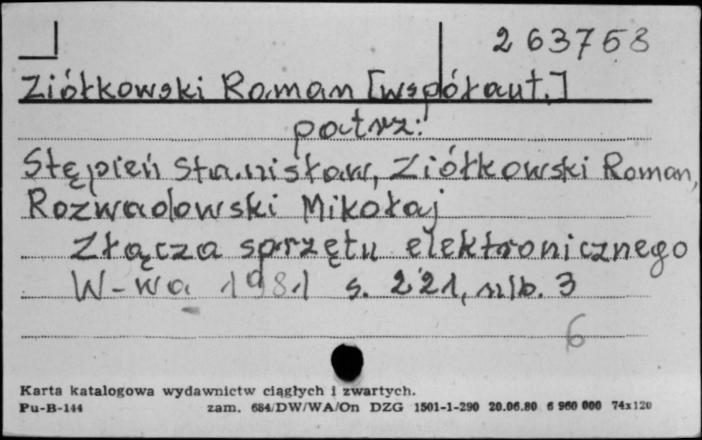 263758
Ziółkowski Roman [współaut.]
patrz:
Stępień Stanisław, Ziółkowski Roman,
Rozwadowski Mikołaj
Złącza sprzętu elektronicznego
W-wa 1981 s. 221, nlb. 3
6
Karta katalogowa wydawnictw ciągłych i zwartych.
Pu-B-144 zam. 684/DW/WA/On DZG 1501-1-290 20.06.80 6 960 000 74x120